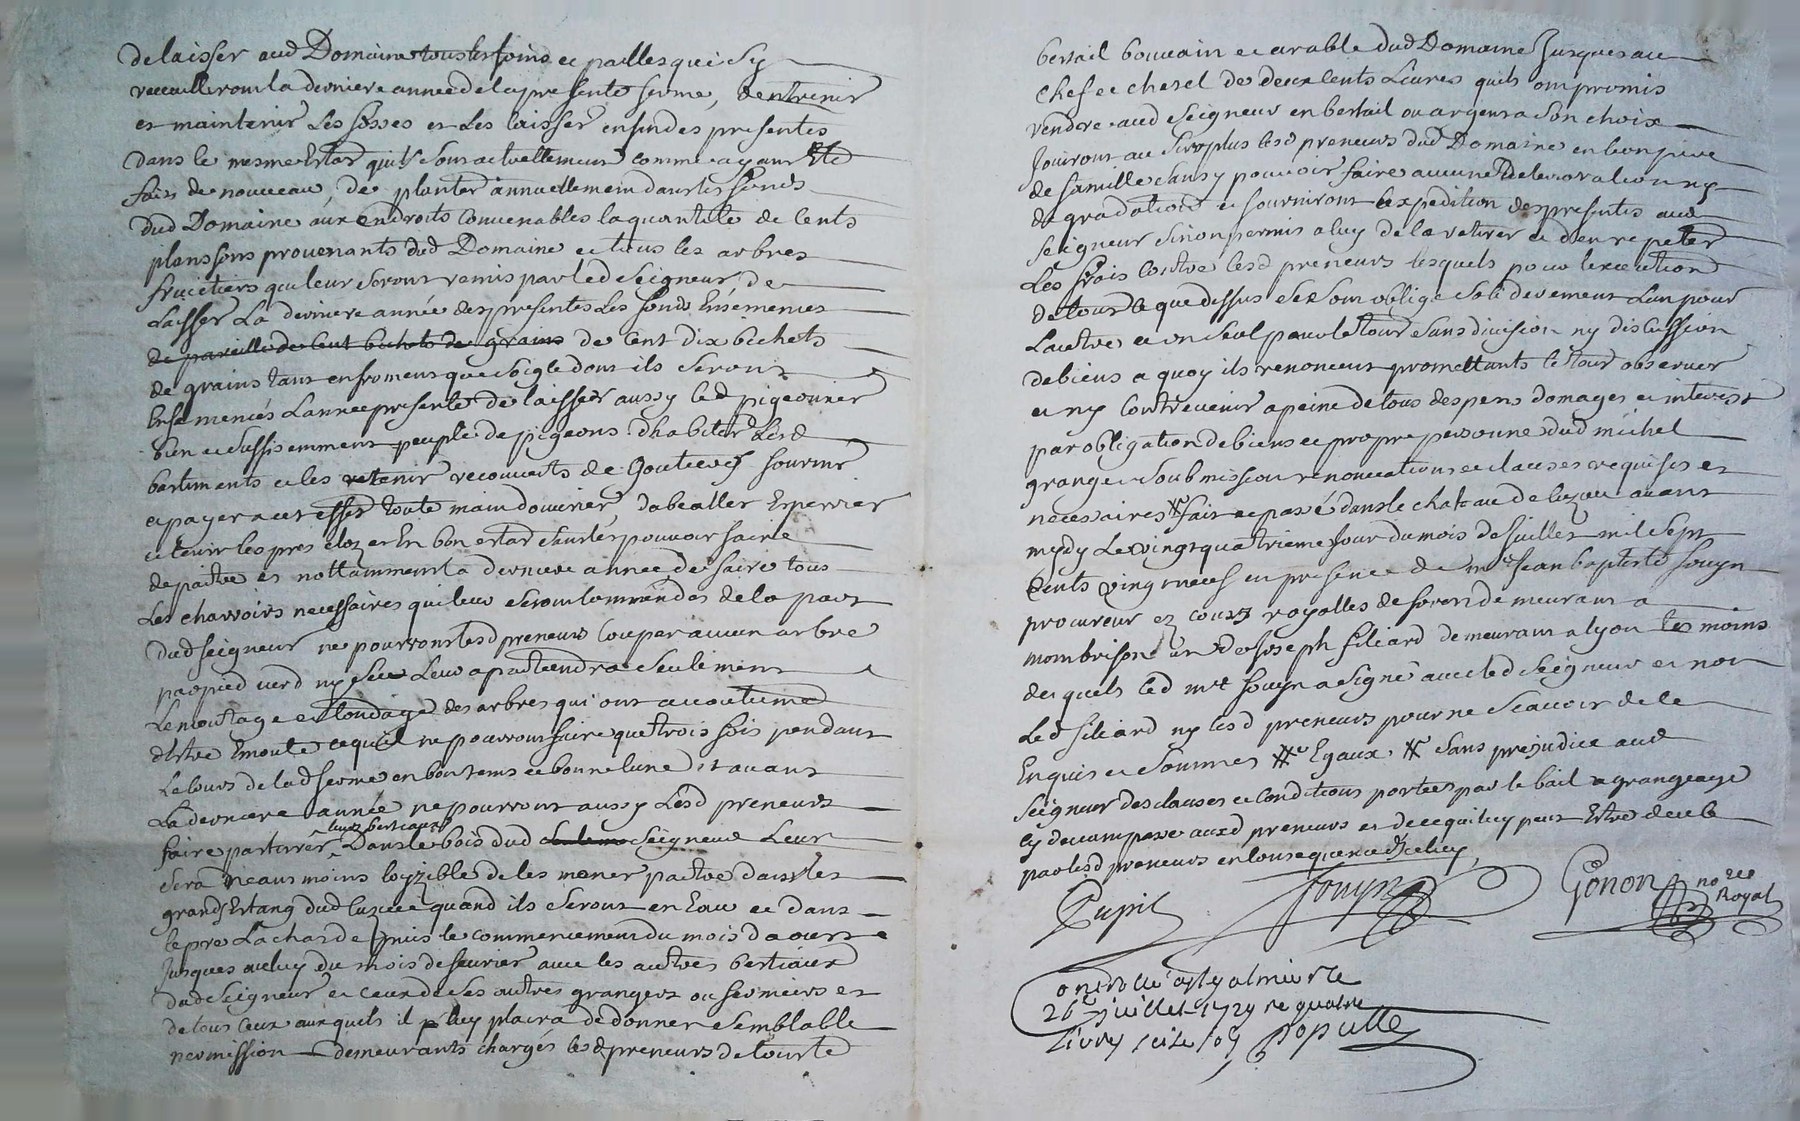 delaisser aud Domaine tous les foins et pailles qui sy
receuilleront la derniere annee de la presente ferme, dentrenir
et maintenir les fosses et les laisser enfin des presentes
dans le mesme Estat quils sont actuellement comme ayant Eté
faits de nouveau, de planter annuellement dans les fonds
dud Domaine aux endroits convenables la quantite de cents
planssons provenants dud Domaine et tous les arbres
fruictiers qui leur seront remis par led Seigneur, de
laisser la derniere année des presentes les fonds Ensemencés
de pareille de cent bichets de grains de cent dix bichets
de grains tant en froment que seigle dont ils seront
Ensemencés lannee presente de laisser aussy led pigeonier
bien et suffisemment peuplé de pigeons dhabiter lesd
bastiments et les retenir recouverts de goutieres fournir
et payer a cet effet toute main douvrier, dabealler Esperrier
et tenir les pres cloz et En bon estat sans les pouvoir faire
depaitre et nottamment la derniere annee de faire tous
les charroirs necessaires qui leur seront commandés de la part
dud seigneur ne pourront lesd preneurs couper aucun arbre
par pied verd ny sec leur apartiendra seulement
lemoutage et tondage des arbres qui ont accoutumé
destre Emouté ce quil ne pourront faire que trois fois pendant
le cours de lad ferme en bon tems et bonne lune et avant
la derniere année ne pourront aussy lesd preneurs
faire pasturer leurs bestiaux dans le bois dud Seigneur leur
sera neansmoins loyzible de les mener paitre dans les
grands Estang dud luzieu quand ils seront en Eau et dans
le pre la charde puis le commencement du mois daoust
jusques a celuy du mois de fevrier avec les autres bestiaux
dud Seigneur et ceux de ses autres grangers ou fermiers et
de tous ceux auxquels il luy plaira de donner semblable
permission demeurants chargés lesd preneurs de tout le
bestail bouvain et arable dud Domaine jusques au
chef et chetel de deux cents livres quils ont promis
rendre aud Seigneur en bestail ou argent a son choix
jouiront au surplus lesd preneurs dud Domaine en bon pere
de famille sans y pouvoir faire aucune deterioration ny
degradation et fourniront lexpedition des presentes aud
Seigneur sinon permis a luy de la retirer et den repeter
les frais contre lesd preneurs lesquels pour lexecution
de tout le que dessus se sont obligé solidevement lun pour
lautre et un seul pour le tout sans division ny discussion
de biens a quoy ils renoncent promettants le tout observer
et ny contrevenir a peine de tous despens domages et interest
par obligation de biens et propre personne dud michel
grange soubmission renonciations et clauses requises et
necessaires fait et passé dans le chateau de luzieu avant
mydy le vingt quatrieme jour du mois de juillet mil sept
cents vingt neuf en presence de me jean baptiste jouyn
procureur ez cours royalles de forest demeurant a
monbrison et de joseph filiard demeurant a lyon tesmoins
desquels led me jouyn a signé avec led Seigneur et non
led filiard ny lesd preneurs pour ne scavoir de ce
Enquis et sommés Egaux sans prejudice aud
seigneur des clauses et conditions portées par le bail a grangeage
cy devant passé auxd preneurs et de ce qui luy peut Estre deub
par lesd preneurs en consequence diceluy
Pupil jouyn Gonon nore Royal
Controllé a st galmier le
26e juillet 1729 re quatre
livres seize sols Populle